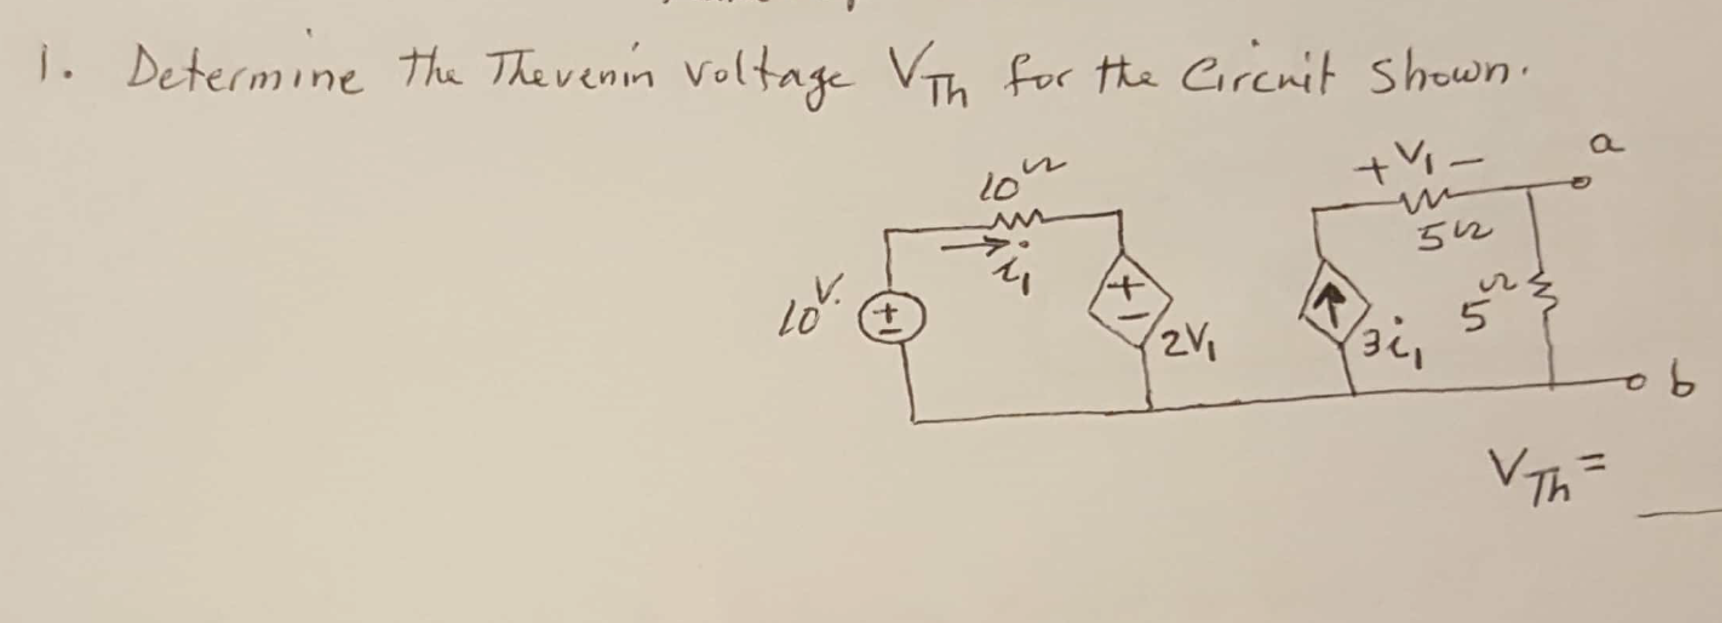 1. Determine the Thevenin voltage VTh for the Circuit Shown.
+ V1 - a
10Ω
5Ω
i1
10V. + - + - 5Ω
2V1 3i1
b
VTh = ___